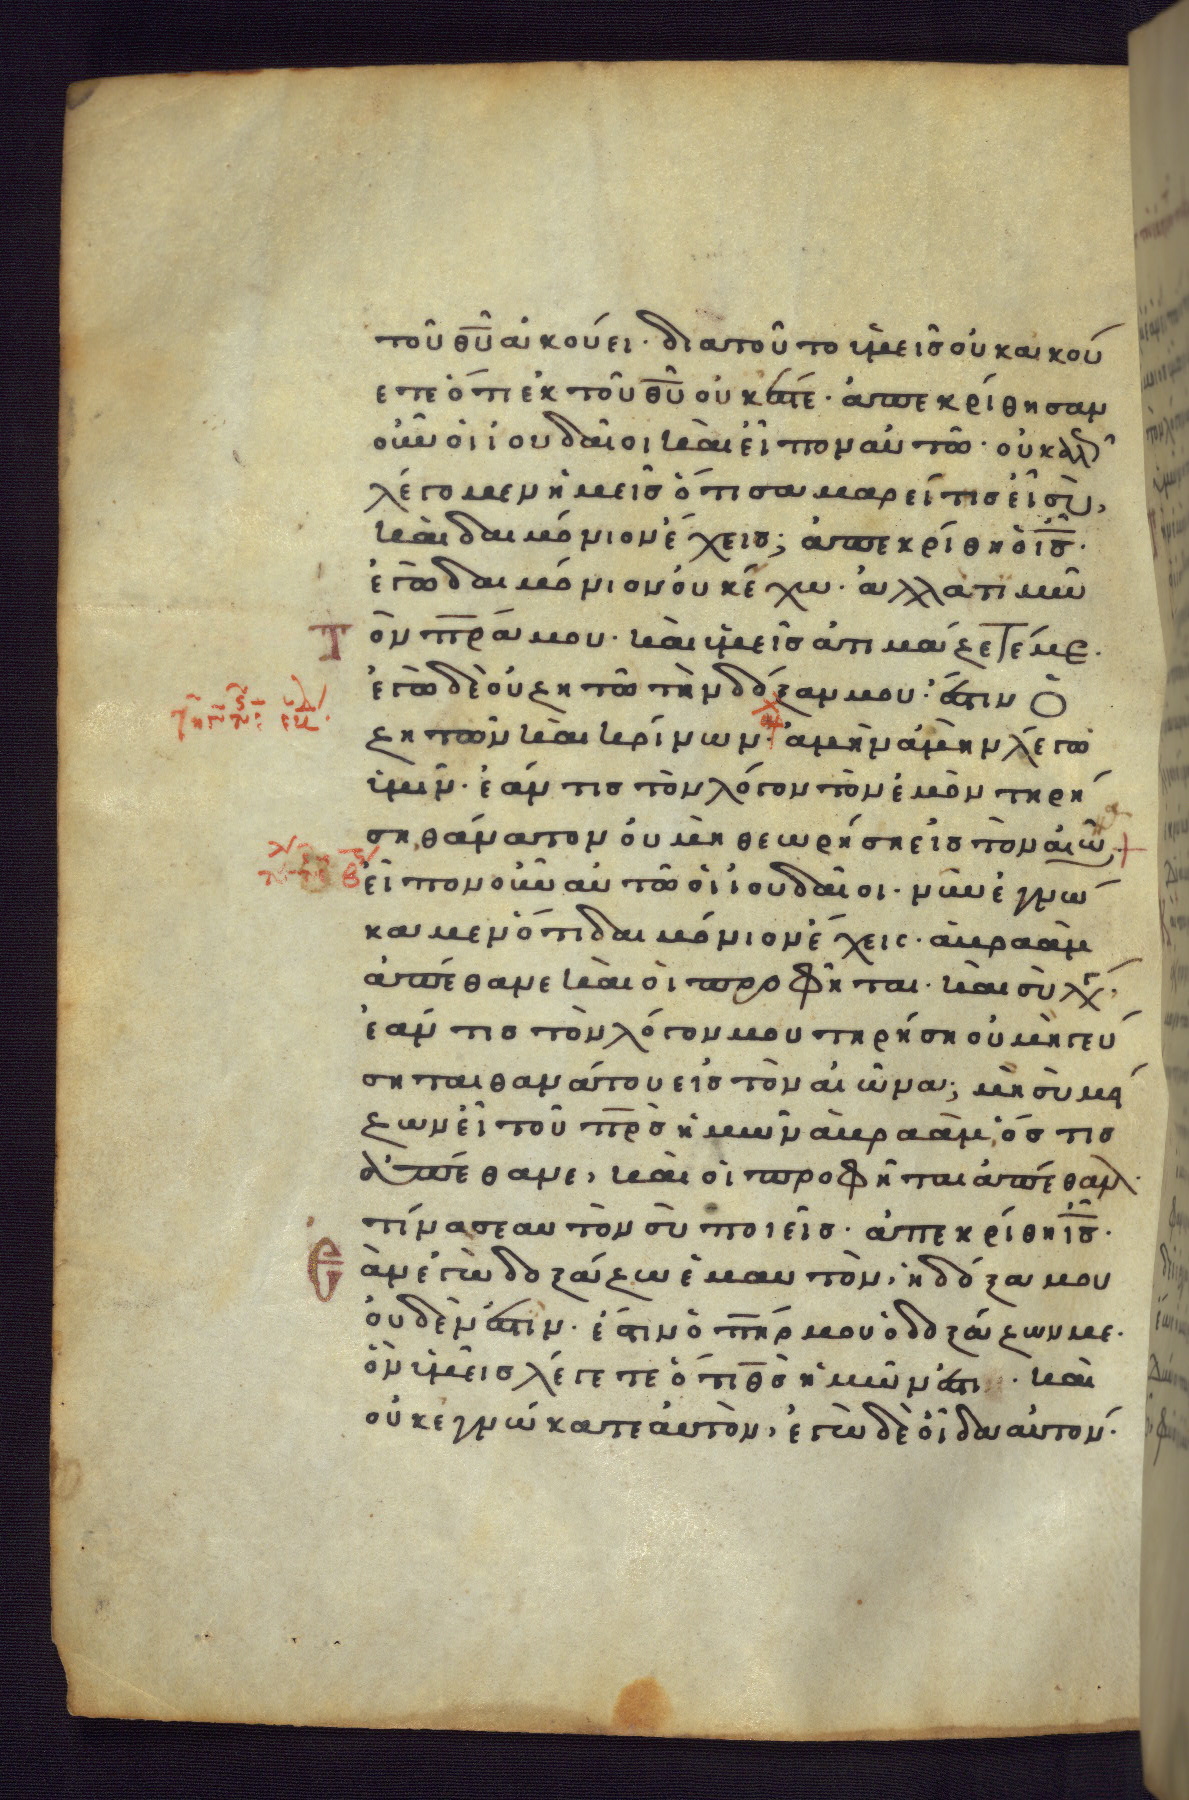 τοῦ θῦ ἀκούει· διατοῦτο ὑμεῖς οὐκ ακού
ετε ὅτι ἐκ τοῦ θῦ οὐκ ἐστέ· ἀπεκρίθησαν
οὖν οἱ ἰουδαῖοι καὶ εἶπον αὐτῶ· οὐ καλῶ
λέγομεν ἡμεῖς ὅτι σαμαρείτις εἶ σὺ,
καὶ δαιμόνιον ἔχεις; ἀπεκρίθη ὁ ις·
ἐγὼ δαιμόνιον οὐκ ἔχω· ἀλλα τιμῶ
Τ ὸν πρά μου· καὶ ὑμεῖς ἀτιμάζετέ με·
ἐγὼ δὲ οὐ ζητῶ τὴν δόξαν μου· ἔστιν ὁ
ζητῶν καὶ κρίνων· ἀμὴν ἀμὴν λέγω
ὑμῖν· ἐάν τις τὸν λόγον τὸν ἐμὸν τηρή
ση, θάνατον οὐ μὴ θεωρήση εἰς τὸν αἰῶ
εἶπον οὖν αὐτῶ οἱ ἰουδαῖοι· νῦν ἐγνώ
καμεν ὅτι δαιμόνιον ἔχεις· ἀβραὰμ
ἀπέθανε καὶ οἱ προφῆται· καὶ σὺ λέ·
ἐάν τις τὸν λόγον μου τηρήση οὐ μὴ γεύ
σηται θανάτου εἰς τὸν αἰῶνα; μὴ σὺ μεί
ζων εἶ τοῦ πρς ἡμῶν ἀβραὰμ, ὅς τις
ἀπέθανε, καὶ οἱ προφῆται ἀπέθαν·
τίνα σεαυτὸν σὺ ποιεῖς· ἀπεκρίθη ις·
Ε ὰν ἐγὼ δοξάζω ἐμαυτὸν, ἡ δόξα μου
οὐδέν ἐστιν· ἔστιν ὁ πηρ μου ὁ δοξάζων με·
ὃν ὑμεῖς λέγετε ὅτι θς ἡμῶν ἐστι · καὶ
οὐκ εγνώκατε αὐτὸν, ἐγὼ δὲ οἶδα αὐτόν·